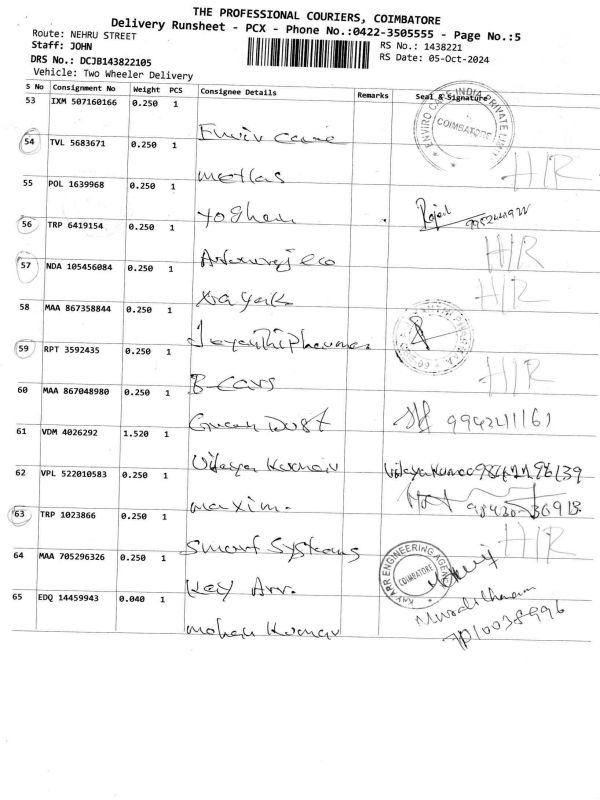 THE PROFESSIONAL COURIERS, COIMBATORE
Delivery Runsheet - PCX - Phone No.:0422-3505555 - Page No.:5
Route: NEHRU STREET
RS No.: 1438221
Staff: JOHN
RS Date: 05-Oct-2024
DRS No.: DCJB143822105
Vehicle: Two Wheeler Delivery
S No Consignment No Weight PCS Consignee Details Remarks Seal & Signature
53 IXM 507160166 0.250 1
ENVIRO CARE INDIA PRIVATE LIMITED COIMBATORE
Enviv care
54 TVL 5683671 0.250 1 H/R
metlas
55 POL 1639968 0.250 1
yoghan
56 TRP 6419154 0.250 1 H/R
57 NDA 105456084 0.250 1 H/R
58 MAA 867358844 0.250 1
Jeyanthi Pharma
59 RPT 3592435 0.250 1 H/R
B Cars
60 MAA 867048980 0.250 1 9942411161
Green Dust
61 VDM 4026292 1.520 1
Vijaya Kumar Vijaya Kumar
62 VPL 522010583 0.250 1
maxim.
63 TRP 1023866 0.250 1 H/R
Smart Systems
64 MAA 705296326 0.250 1 ENGINEERING COIMBATORE
Kay Arr.
65 EDQ 14459943 0.040 1
Mohan Kumar